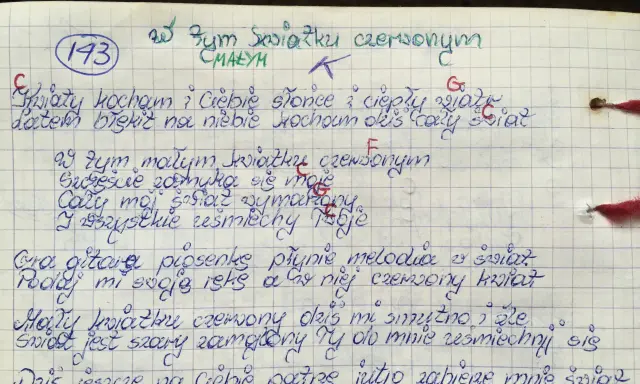 W tym kwiatku czerwonym
193
MAŁYM
C
C G
Kwiaty kocham i Ciebie słońce i ciepły wiatr
C
Latem błękit na niebie kocham dziś cały świat
F
W tym małym kwiatku czerwonym
Szczęście zamyka się moje
C
Cały mój świat wymarzony
G
I wszystkie uśmiechy Twoje
C
Gra gitara piosenkę płynie melodia w świat
Podaj mi swoją rękę a w niej czerwony kwiat
Mały kwiatku czerwony dziś mi smutno i źle
Świat jest szary zamglony Ty do mnie uśmiechnij się
Dziś jeszcze na Ciebie patrzę jutro zabierze mnie świat